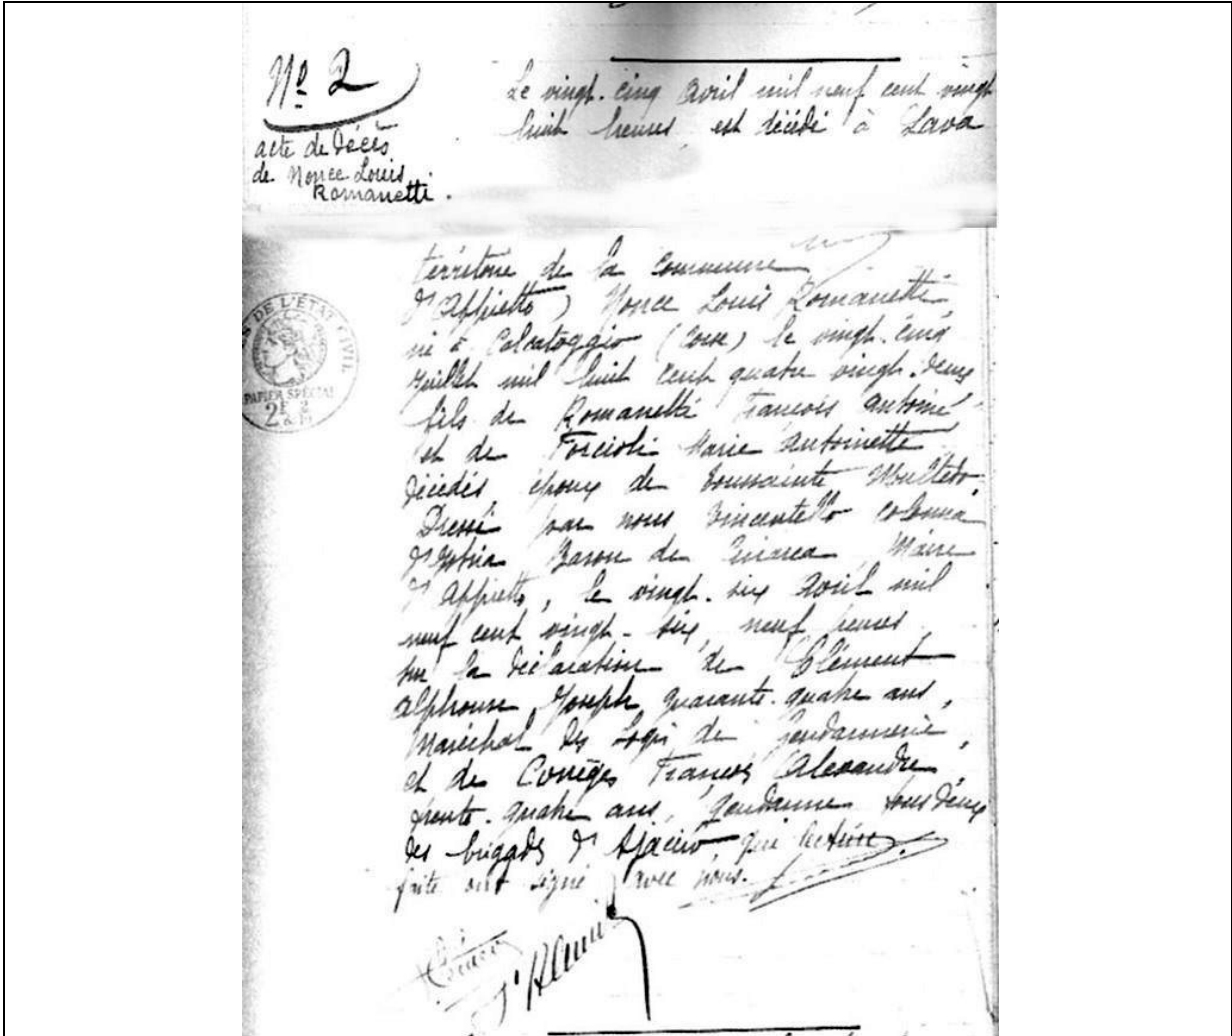 Nº 2
acte de décès
de Nonce Louis
Romanetti.
Le vingt-cinq avril mil neuf cent vingt
huit heures, est décédé à Lava
territoire de la Commune
d'Appietto) Nonce Louis Romanetti
né à Calcatoggio (Corse) le vingt-cinq
Juillet mil huit cent quatre vingt-deux
fils de Romanetti François Antoine
et de Forcioli Marie Antoinette
décédés, époux de Toussainte Moultedo.
Dressé par nous Vincentello Colonna
d'Istria Baron de Cinarca, Maire
d'Appietto, le vingt-six avril mil
neuf cent vingt-six, neuf heures,
sur la déclaration de Clément
Alphonse Joseph, quarante-quatre ans,
Maréchal des Logis de Gendarmerie,
et de Corrèges François Alexandre,
trente-quatre ans, gendarme tous deux
des brigades d'Ajaccio, qui lecture
faite ont signé avec nous.
DE L'ÉTAT CIVIL
PAPIER SPÉCIAL